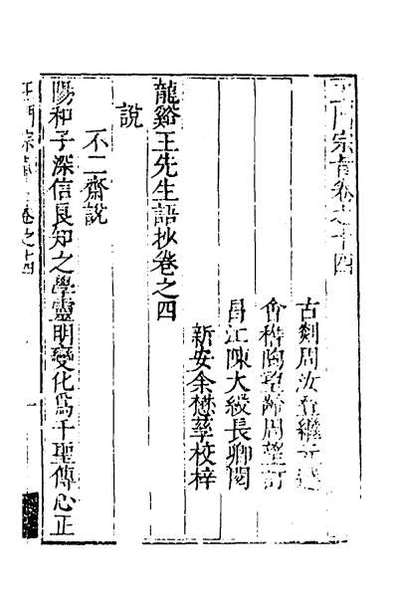 王門宗旨卷之十四
古剡周汝登繼元選
會稽陶望齡周望訂
昌江陳大綬長卿閱
新安余懋孳校梓
龍谿王先生語抄卷之四
說
不二齋說
陽和子深信良知之學靈明變化爲千聖傳心正
王門宗旨 卷之十四
一